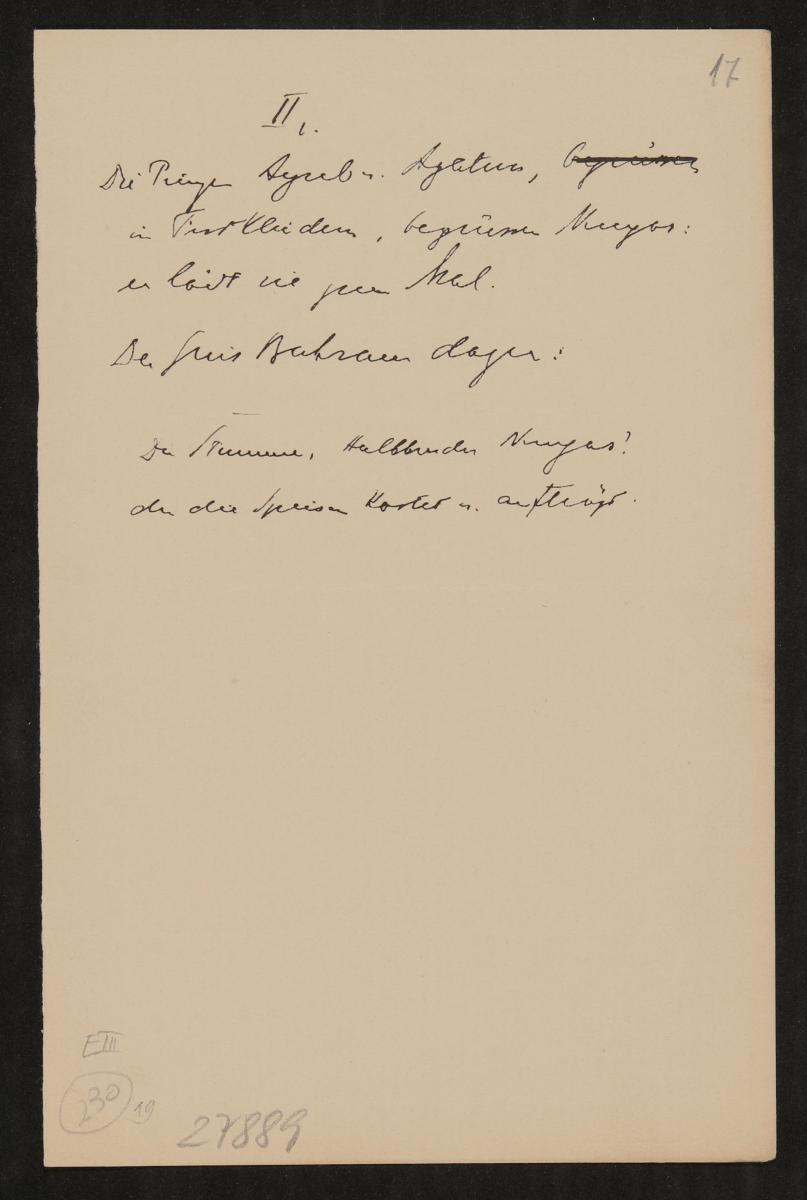 17
II,.
Die Prinzen u. begrüssen
in Festkleidern, begrüssen
er lädt sie zum Mal.
Der Greis Bahram dagegen:
Der Stumme, Halbbruder
der die Speisen kostet u. aufträgt.
EIII
230
19
27889